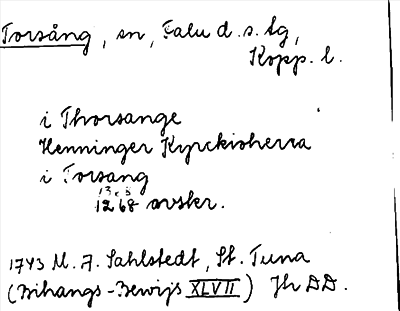 Torsång, sn, Falu d. s. lg,
Kopp. l.
i Thorsange
Henninger Kyrckioherra
i Torsang
13 8
1268 avskr.
1743 M. A. Sahlstedt, St. Tuna
(Bihangs-Bewijs XLVII) Jh DD.